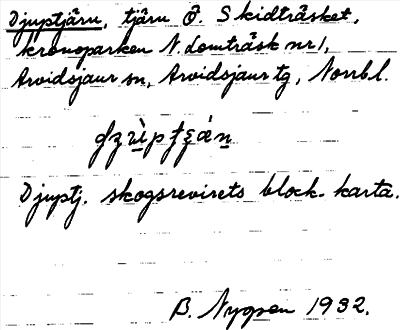 Djuptjärn, tjärn Ö. Skidträsket,
kronoparken N. Lomträsk nr 1,
Arvidsjaur sn, Arvidsjaur tg, Norrb.l.
Djuptj. skogsrevirets block-karta.
B. Nygren 1932.